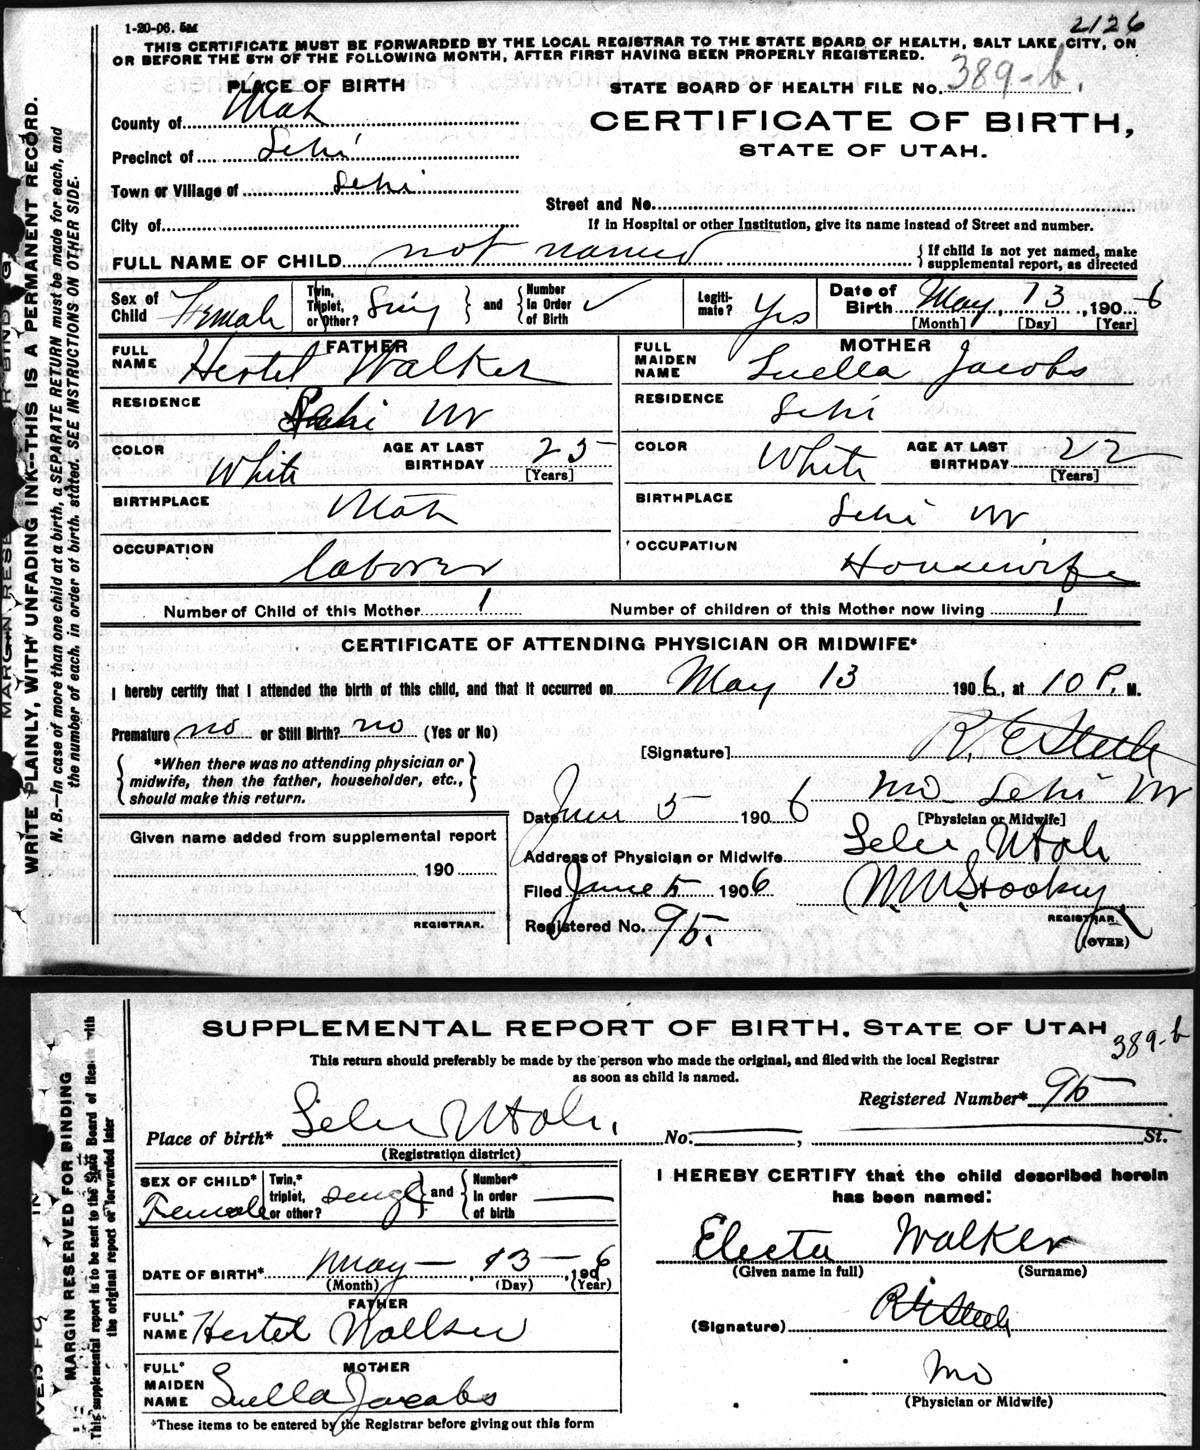 1-20-06. 5M
2126
THIS CERTIFICATE MUST BE FORWARDED BY THE LOCAL REGISTRAR TO THE STATE BOARD OF HEALTH, SALT LAKE CITY, ON
OR BEFORE THE 5TH OF THE FOLLOWING MONTH, AFTER FIRST HAVING BEEN PROPERLY REGISTERED.
PLACE OF BIRTH
STATE BOARD OF HEALTH FILE No. 389-b.
County of Utah
CERTIFICATE OF BIRTH,
STATE OF UTAH.
Precinct of Lehi
Town or Village of Lehi
Street and No.
City of
If in Hospital or other Institution, give its name instead of Street and number.
FULL NAME OF CHILD not named { If child is not yet named, make supplemental report, as directed
Sex of Child Female Twin, Triplet, or Other? Sing } and { Number in Order of Birth ✓ Legiti- mate? Yes Date of Birth May 13, 1906
[Month] [Day] [Year]
FATHER
MOTHER
FULL NAME Hertel Walker
FULL MAIDEN NAME Luella Jacobs
RESIDENCE Lehi Ut
RESIDENCE Lehi
COLOR White AGE AT LAST BIRTHDAY 25 [Years]
COLOR White AGE AT LAST BIRTHDAY 22 [Years]
BIRTHPLACE Utah
BIRTHPLACE Lehi Ut
OCCUPATION laborer
OCCUPATION Housewife
Number of Child of this Mother 1 Number of children of this Mother now living 1
CERTIFICATE OF ATTENDING PHYSICIAN OR MIDWIFE*
I hereby certify that I attended the birth of this child, and that it occurred on May 13 1906, at 10 P. M.
Premature no or Still Birth? no (Yes or No)
[Signature] R. E. Steele
{ *When there was no attending physician or
midwife, then the father, householder, etc.,
should make this return. }
MD Lehi Ut
[Physician or Midwife]
Date June 5 1906
Given name added from supplemental report
190
REGISTRAR.
Address of Physician or Midwife Lehi, Utah
Filed June 5 1906
REGISTRAR.
Registered No. 95.
(OVER)
MARGIN RESE
WRITE PLAINLY, WITH UNFADING INK--THIS IS A PERMANENT RECORD.
N. B.—In case of more than one child at a birth, a SEPARATE RETURN must be made for each, and
the number of each, in order of birth, stated. SEE INSTRUCTIONS ON OTHER SIDE.
SUPPLEMENTAL REPORT OF BIRTH, STATE OF UTAH
389-b
This return should preferably be made by the person who made the original, and filed with the local Registrar
as soon as child is named.
Registered Number* 95
Place of birth* Lehi Utah. No. , St.
(Registration district)
SEX OF CHILD* Female Twin,* triplet, or other? single } and { Number* in order of birth
I HEREBY CERTIFY that the child described herein
has been named:
Electa Walker
(Given name in full) (Surname)
DATE OF BIRTH* May 13 1906
(Month) (Day) (Year)
FATHER
FULL* NAME Hertel Walker
(Signature) R E Steele
MOTHER
FULL* MAIDEN NAME Luella Jacobs
MD
(Physician or Midwife)
*These items to be entered by the Registrar before giving out this form
MARGIN RESERVED FOR BINDING
This supplemental report is to be sent to the State Board of Health with
the original report or forwarded later